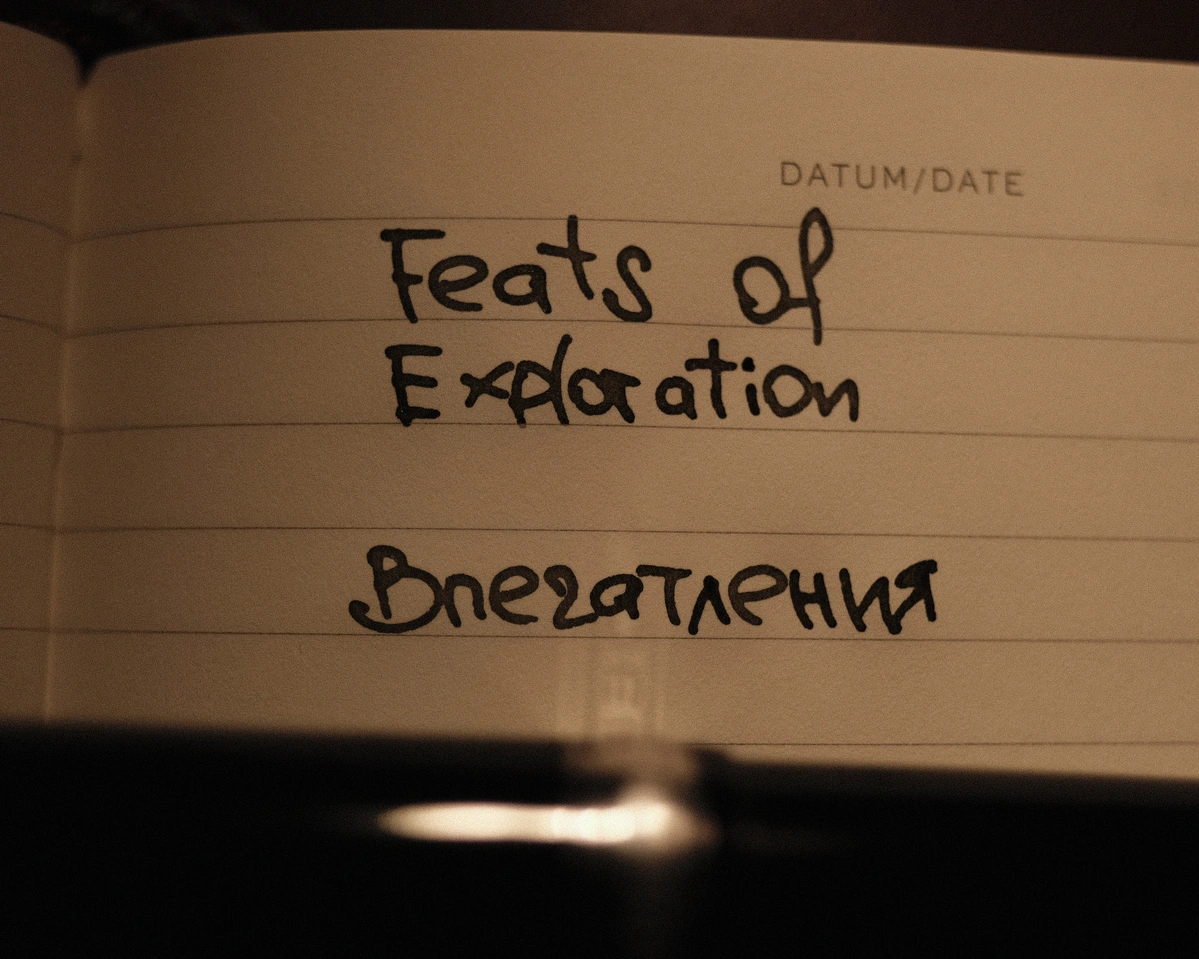 DATUM/DATE
Feats of
Exploration
Впечатления